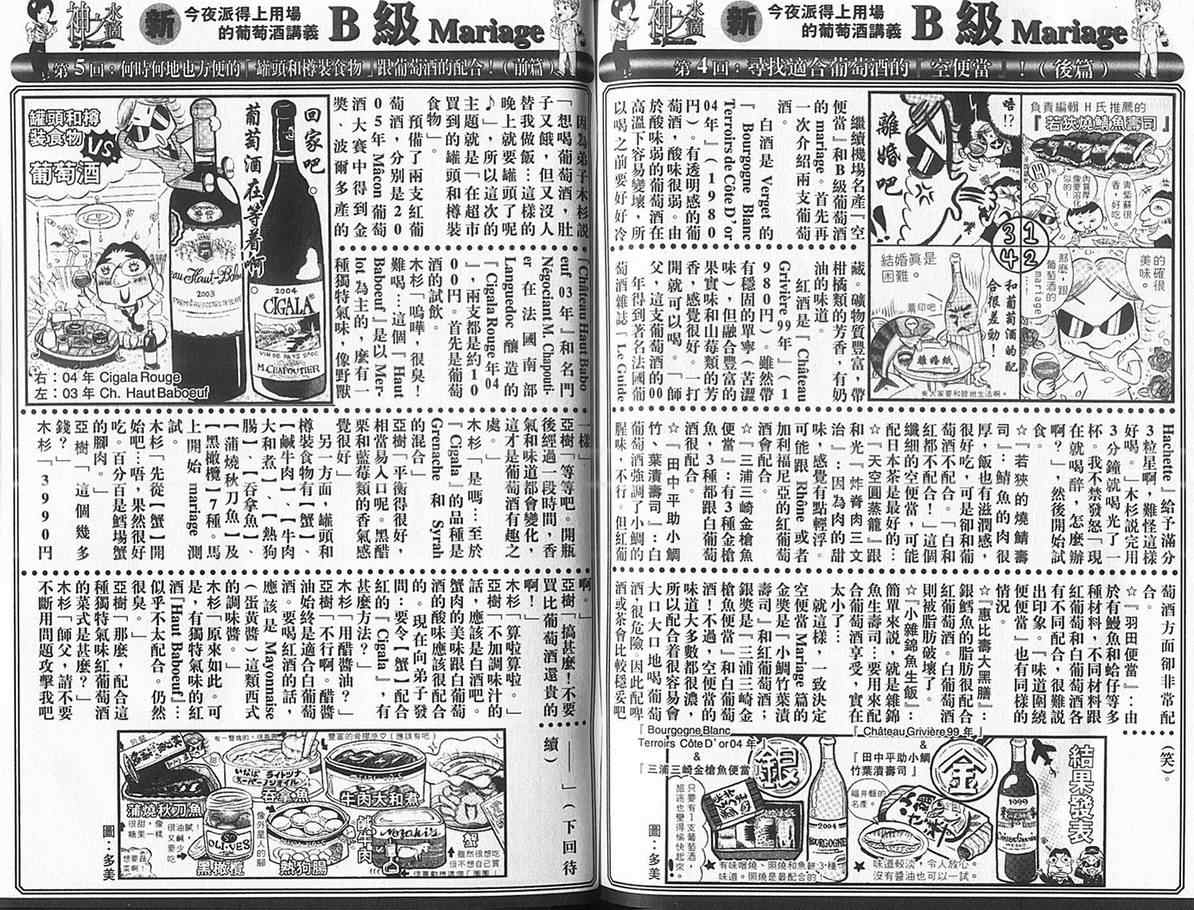 神之水滴
新
今夜派得上用場
的葡萄酒講義
B級 Mariage
第4回：尋找適合葡萄酒的「空便當」！（後篇）
負責編輯H氏推薦的
『若狹燒鯖魚壽司』
青紫蘇很
香，好吃。
的確很
美味。
那麼，跟
葡萄酒的
mariage
和葡萄酒的配
合很差勁！
唔!?
離婚吧
結婚真是
困難。
離婚紙
1
2
3
4
繼續機場名產『空
便當』和B級葡萄酒
的mariage。首先再
一次介紹兩支葡萄
酒。
白酒是Verget的
『Bourgogne Blanc
Terroirs de Côte D'or
04年』（1980
円）。有透明感的葡
萄酒，酸味很弱。由
於酸味弱的葡萄酒在
高溫下容易變壞，所
以喝之前要好好冷
藏。礦物質豐富，帶
柑橘類的芳香，有奶
油的味道。
紅酒是『Château
Grivière 99年』（1
980円）。雖然帶
有穩固的單寧（苦澀
味），但融合豐富的
果實味和山莓類的芳
香，感覺很好。一打
開就可以喝。「師
父，這支葡萄酒的00
年得到著名法國葡
萄酒雜誌『Le Guide
Hachette』給予滿分
3粒星啊，難怪這樣
好喝。」木杉說完用
3分鐘就喝光了一
杯。我不禁發怒「現
在就喝醉，怎麼辦
？」，然後開始試
食。
☆『若狹的燒鯖壽
司』：鯖魚的肉很
厚，飯也有滋潤感，
很好吃，可是卻和葡
萄酒不配合。「白和
紅都不配合！」這個
纖細的空便當，可能
配日本茶是最好的。
☆『天空圓蒸籠』跟
和光『炸脊肉三文
治』：因為肉的甜
味，感覺有點輕浮。
可能跟Rhône或者
加利福尼亞的紅葡萄
酒會配合。
☆『三浦三崎金槍魚
便當』：有3種金槍
魚，3種都跟白葡萄
酒很配合。
☆『田中平助小鯛
竹葉漬壽司』：白
葡萄酒強調了小鯛的
腥味，不行。但紅葡
萄酒方面卻非常配
合。
☆『羽田便當』：由
於有鰻魚和蛤仔等多
種材料，不同材料跟
紅葡萄和白葡萄酒各
有不同配合，很難說
出印象。『味道圍繞
便便當』也有同樣的
情況。
☆『惠比壽大黑膳』：
銀鱈魚的脂肪很配合
紅葡萄酒。白葡萄酒
則被脂肪破壞了。
☆『小雜錦魚生飯』：
簡單來說，就是雜錦
魚生壽司…要用來配
合葡萄酒享受，實在
太小了…
就這樣，一致決定
空便當Mariage篇的
金獎是『小鯛竹葉漬
壽司』和紅葡萄酒；
銀獎是『三浦三崎金
槍魚便當』和白葡萄
酒！不過，空便當的
味道大多數都很濃，
所以配合着很容易會
大口大口地喝葡萄
酒，很危險。因此配啤
酒或茶會比較穩妥吧
（笑）。
結果發表
金
『Château Grivière 99年』
&
『田中平助小鯛
竹葉漬壽司』
福井縣的
名產。
味道較淡，令人放心。
沒有醬油也可以一試。
銀
『Bourgogne Blanc
Terroirs Côte D'or 04年』
&
『三浦三崎金槍魚便當』
只要有1支葡萄酒，
旅途也變得愉快起來。
有味噌燒、照燒和魚餅3種
味道。照燒是最配合的！
1999
2004
圖：多美
神之水滴
新
今夜派得上用場
的葡萄酒講義
B級 Mariage
第5回：何時何地也方便的「罐頭和樽裝食物」跟葡萄酒的配合！（前篇）
回家吧。
葡萄酒在等着啊
罐頭和樽
裝食物
VS
葡萄酒
2003
2004
CIGALA
VIN DE PAYS D'OC
M.CHAPOUTIER
右：04年 Cigala Rouge
左：03年 Ch. Haut Baboeuf
「因為弟子木杉說
『想喝葡萄酒，肚
子又餓，但又沒人
替我做飯…這樣的
晚上就要罐頭了呢
♪』，所以這次的
主題就是「在超市
買到的罐頭和樽裝
食物」。
預備了兩支紅葡
萄酒，分別是20
05年Mâcon葡萄
酒大賽中得到金
獎、波爾多產的
『Château Haut Babo
euf 03年』和名門
Négociant M. Chapouti-
er在法國南部
Languedoc釀造的
『Cigala Rouge 年04
』，兩支都是約10
00円。首先是葡萄
酒的試飲。
木杉「嗚嘩，很臭！
難喝…這個『Haut
Baboeuf』是以Mer-
lot為主的，麼有一
種獨特氣味，像野獸
一樣。」
亞樹「等等吧。開瓶
後經過一段時間，香
氣和味道都會變化，
這才是葡萄酒有趣之
處。」
木杉「是嗎…至於
『Cigala』的品種是
Grenache和Syrah
的混合。」
亞樹「平衡得很好，
相當易入口呢。黑醋
栗和藍莓類的香氣感
覺很好。」
另一方面，罐頭和
樽裝食物有【蟹】、
【鹹牛肉】、【牛肉
大和煮】、【熱狗
腸】、【吞拿魚】、
【蒲燒秋刀魚】及
【黑橄欖】7種。馬
上開始mariage測
試。
木杉「先從【蟹】開
始吧…唔，果然很好
吃。百分百是鱈場蟹
的腳肉。」
亞樹「這個幾多
錢？」
木杉「3990円
啊。」
亞樹「搞甚麼！不要
買比葡萄酒還貴的
啊！」
木杉「算啦算啦。」
亞樹「不加調味汁的
話，應該是白酒吧。
蟹肉的美味跟白葡萄
酒的酸味應該很配合
的。現在向弟子發
問：要令【蟹】配合
紅的『Cigala』，有
甚麼方法？」
木杉「用醋醬油？」
亞樹「不行啊。醋醬
油始終是適合白葡萄
酒。要喝紅酒的話，
應該是Mayonnaise
（蛋黃醬）這類西式
的調味醬。」
木杉「原來如此。可
是，有獨特氣味的紅
酒『Haut Baboeuf』…
似乎不太配合。仍然
很臭。」
亞樹「那麼，配合這
種獨特氣味紅葡萄酒
的菜式是甚麼？」
木杉「師父，請不要
不斷用問題攻擊我吧
——」（下回待
續）
蒲燒秋刀魚
吞拿魚
牛肉大和煮
蟹
鹹牛肉
熱狗腸
黑橄欖
OLIVES
Nozaki's
いなば
ライトツナ
豐富的骨膠原♡（應該有吧）
很甜，像
糖果一樣
很油膩！
又鹹少
要吃
圖：多美